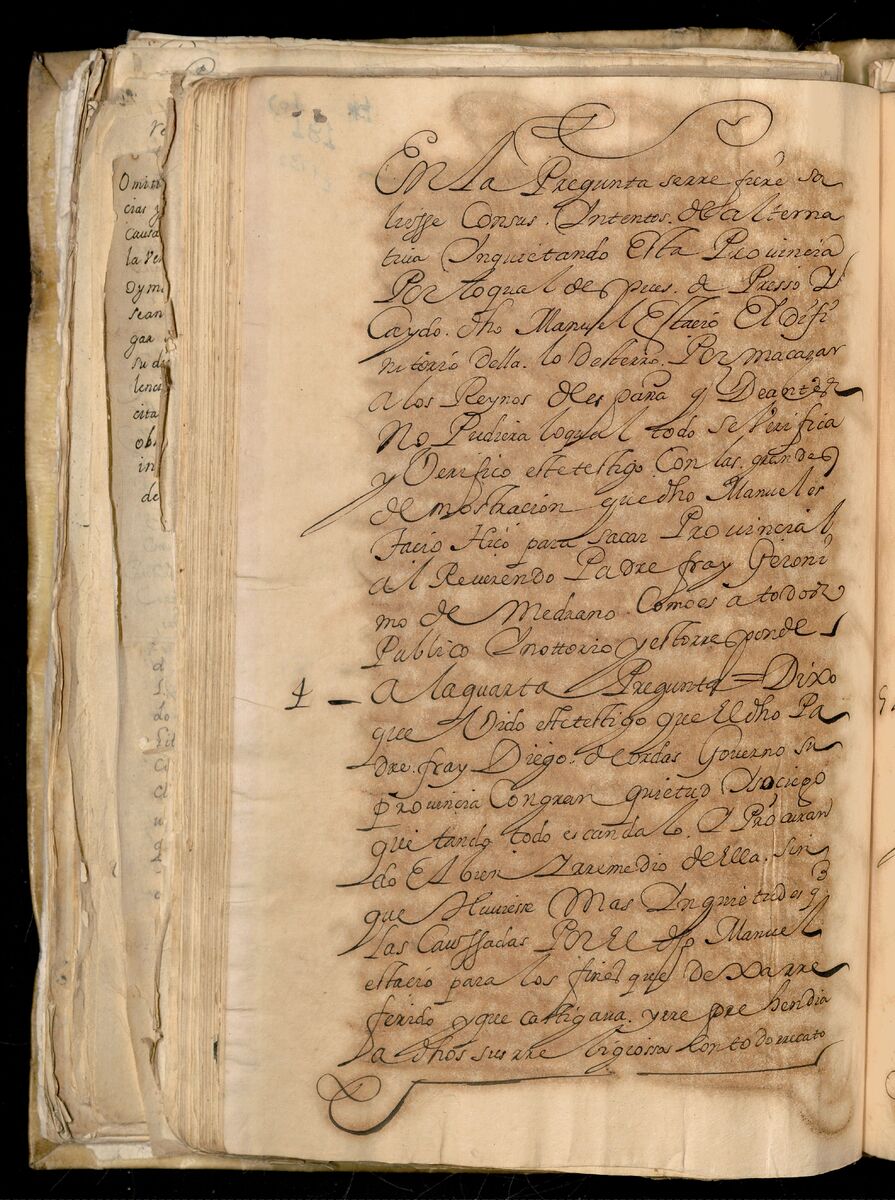 En la Pregunta serre fiere sa
liesse Consus Yntentos de la lterna
tiva Ynquietando Esta Provincia
Por lo qual de pues de Presso Y
Caydo dho Manuel Estacio El difi
nitorio della lo desterro Por macazar
a los Reynos de es paña y De antes
No Pudiera lo qual todo se Verifica
y Verifico este testigo Con las grandes
de mostracion que dho Manuel es
tacio Hiço para sacar Provincial
al Reverendo Padre fray Geroni
mo de Medrano Como es a todos
Publico Y nottorio y esto rre ponde
4 A la quarta Pregunta = Dixo
que Oido este testigo que El dho Pa
dre fray Diego de ordas Governo su
provincia Con gran quietud Y sociego
qui tando todo es canda lo Y Procuran
do El bien Y rremedio de Ella sin
que Huviesse Mas Ynquietudes q
las Caussadas Por El dho Manuel
estacio para los fines que dexa rre
ferido y que castigava y rre pre hendia
a dhos sus rre ligiossos Con todo rrecato
Omiti
cias y
causa
la ve
dy mi
sean
gar
su di
lenc
cita
ob
in
de